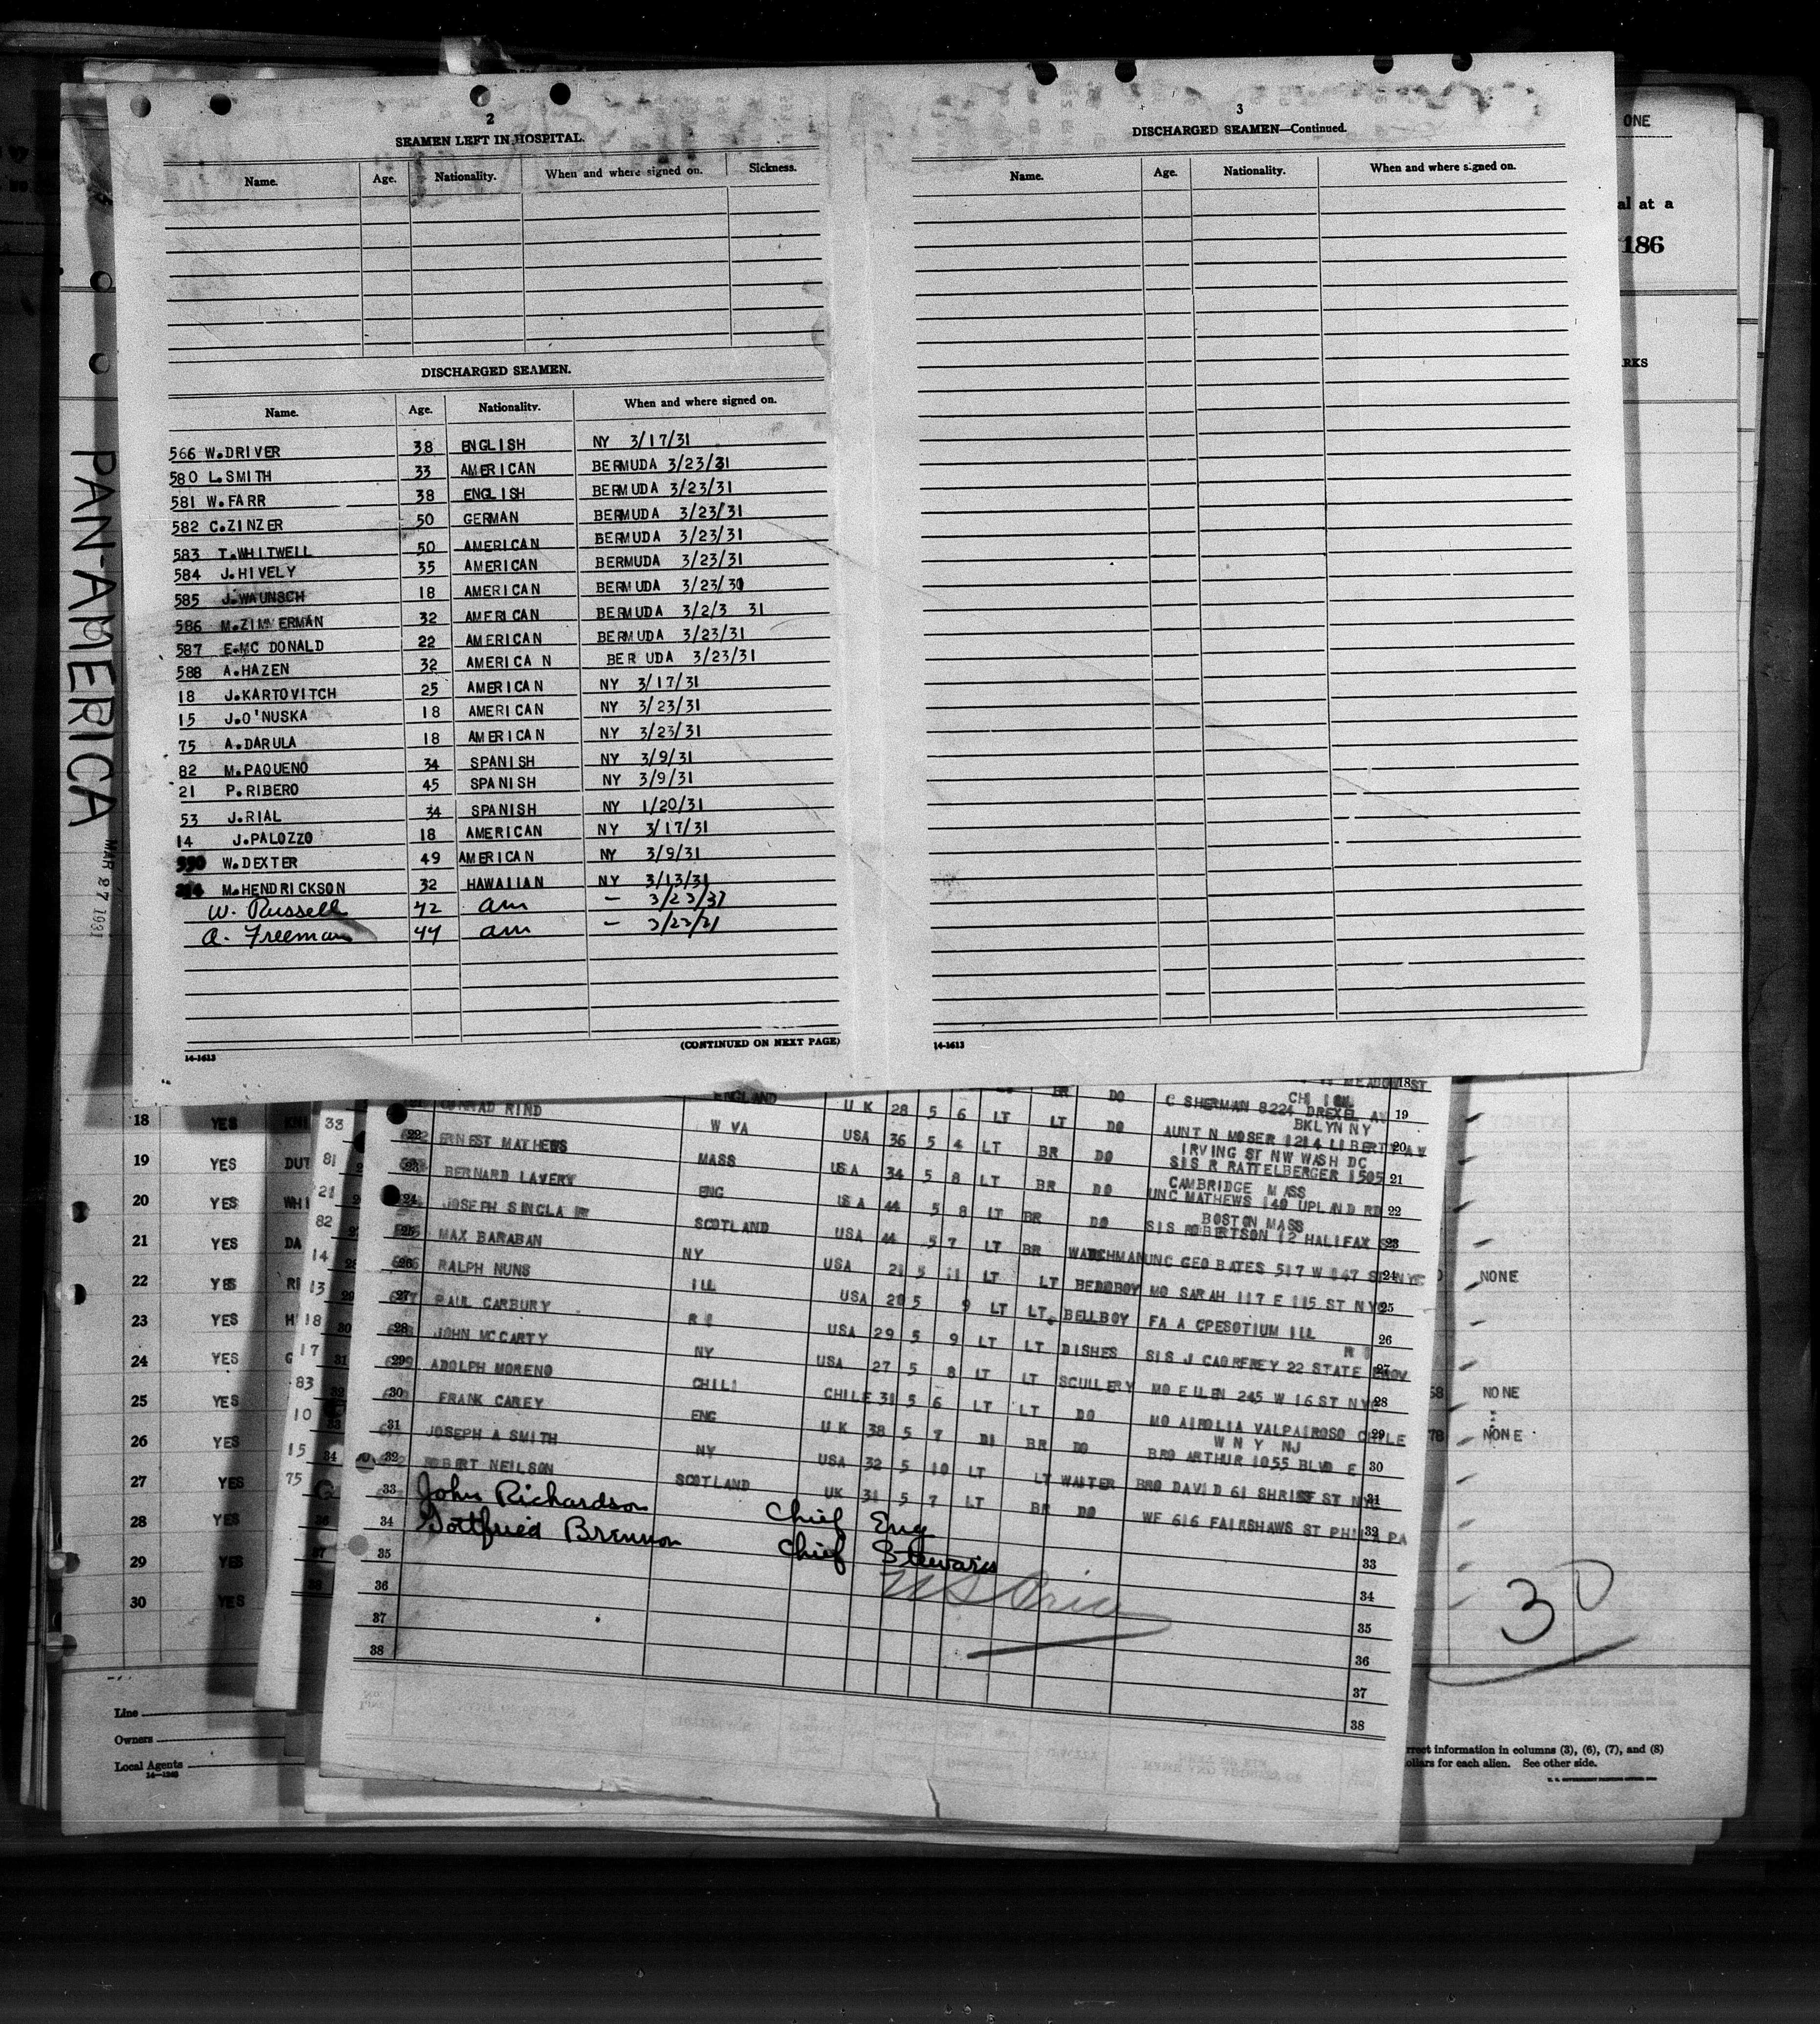 2
SEAMEN LEFT IN HOSPITAL.
Name. Age. Nationality. When and where signed on. Sickness.
DISCHARGED SEAMEN.
Name. Age. Nationality. When and where signed on.
566 W.DRIVER 38 ENGLISH NY 3/17/31
580 L.SMITH 33 AMERICAN BERMUDA 3/23/31
581 W.FARR 38 ENGLISH BERMUDA 3/23/31
582 C.ZINZER 50 GERMAN BERMUDA 3/23/31
583 T.WHITWELL 50 AMERICAN BERMUDA 3/23/31
584 J.HIVELY 35 AMERICAN BERMUDA 3/23/31
585 J.WAUNSCH 18 AMERICAN BERMUDA 3/23/30
586 M.ZIMMERMAN 32 AMERICAN BERMUDA 3/2/3 31
587 E.MC DONALD 22 AMERICAN BERMUDA 3/23/31
588 A.HAZEN 32 AMERICA N BER UDA 3/23/31
18 J.KARTOVITCH 25 AMERICAN NY 3/17/31
15 J.O'NUSKA 18 AMERICAN NY 3/23/31
75 A.DARULA 18 AMERICAN NY 3/23/31
82 M.PAQUENO 34 SPANISH NY 3/9/31
21 P.RIBERO 45 SPANISH NY 3/9/31
53 J.RIAL 34 SPANISH NY 1/20/31
14 J.PALOZZO 18 AMERICAN NY 3/17/31
W.DEXTER 49 AMERICAN NY 3/9/31
M.HENDRICKSON 32 HAWAIIAN NY 3/13/31
W. Russell 42 am — 3/23/31
A. Freeman 44 am — 3/23/31
14-1613
(CONTINUED ON NEXT PAGE)
3
DISCHARGED SEAMEN—Continued.
Name. Age. Nationality. When and where signed on.
14-1613
PAN-AMERICA
MAR 27 1931
ONE
al at a
186
RKS
MEADOW ST
18
ENGLAND BR DO CHI ILL
RIND U K 28 5 6 LT C SHERMAN 8224 DREXEL AV 19
W VA LT DO BKLYN NY
22 ERNEST MATHEWS USA 36 5 4 LT AUNT N MOSER 1214 LIBERTY AV 20
MASS BR DO IRVING ST NW WASH DC
23 BERNARD LAVERY USA 34 5 8 LT SIS R RATTELBERGER 1505 21
ENG BR DO CAMBRIDGE MASS
24 JOSEPH SINCLA USA 44 5 8 LT UNC MATHEWS 140 UPLAND RD 22
SCOTLAND BR DO BOSTON MASS
25 MAX BARABAN USA 44 5 7 LT SIS ROBERTSON 12 HALIFAX 23
NY BR UNC GEO BATES 517 W 147 ST NYC 24
26 RALPH NUNS USA 21 5 11 LT
ILL LT MO SARAH 117 E 115 ST NYC 25
27 PAUL CARBURY USA 20 5 9 LT
R I LT BELLBOY FA A CPESOTIUM ILL 26
28 JOHN MCCARTY USA 29 5 9 LT
NY LT DISHES SIS J CAORFREY 22 STATE 27
29 ADOLPH MORENO USA 27 5 8 LT
CHILI LT SCULLERY MO EILEN 245 W 16 ST NYC 28
30 FRANK CAREY CHILE 31 5 6 LT
ENG LT DO MO AIROLIA VALPAIROSO CHILE 29
31 JOSEPH A SMITH U K 38 5 7 DI W N Y NJ
NY BR DO BRO ARTHUR 1055 BLVD E 30
32 ROBERT NEILSON USA 32 5 10 LT
SCOTLAND LT WAITER BRO DAVID 61 ST NYC 31
UK 31 5 7 LT BR DO WF 616 FAIRSHAWS ST PHILA PA 32
33 John Richardson Chief Eng 33
34 Gottfried Brennon Chief Steward 34
35 35
36 36
37 37
38 38
18 YES 33
19 YES DUT 81
20 YES WHI 21
21 YES DA 82
22 YES RI 14
23 YES H 13
24 YES G 18
25 YES 17
26 YES 83
27 YES 10
28 YES 15
29 YES 75
30 YES
NONE
NONE
NONE
30
Line
Owners
Local Agents
14-1240
rrect information in columns (3), (6), (7), and (8)
ollars for each alien. See other side.
U. S. GOVERNMENT PRINTING OFFICE